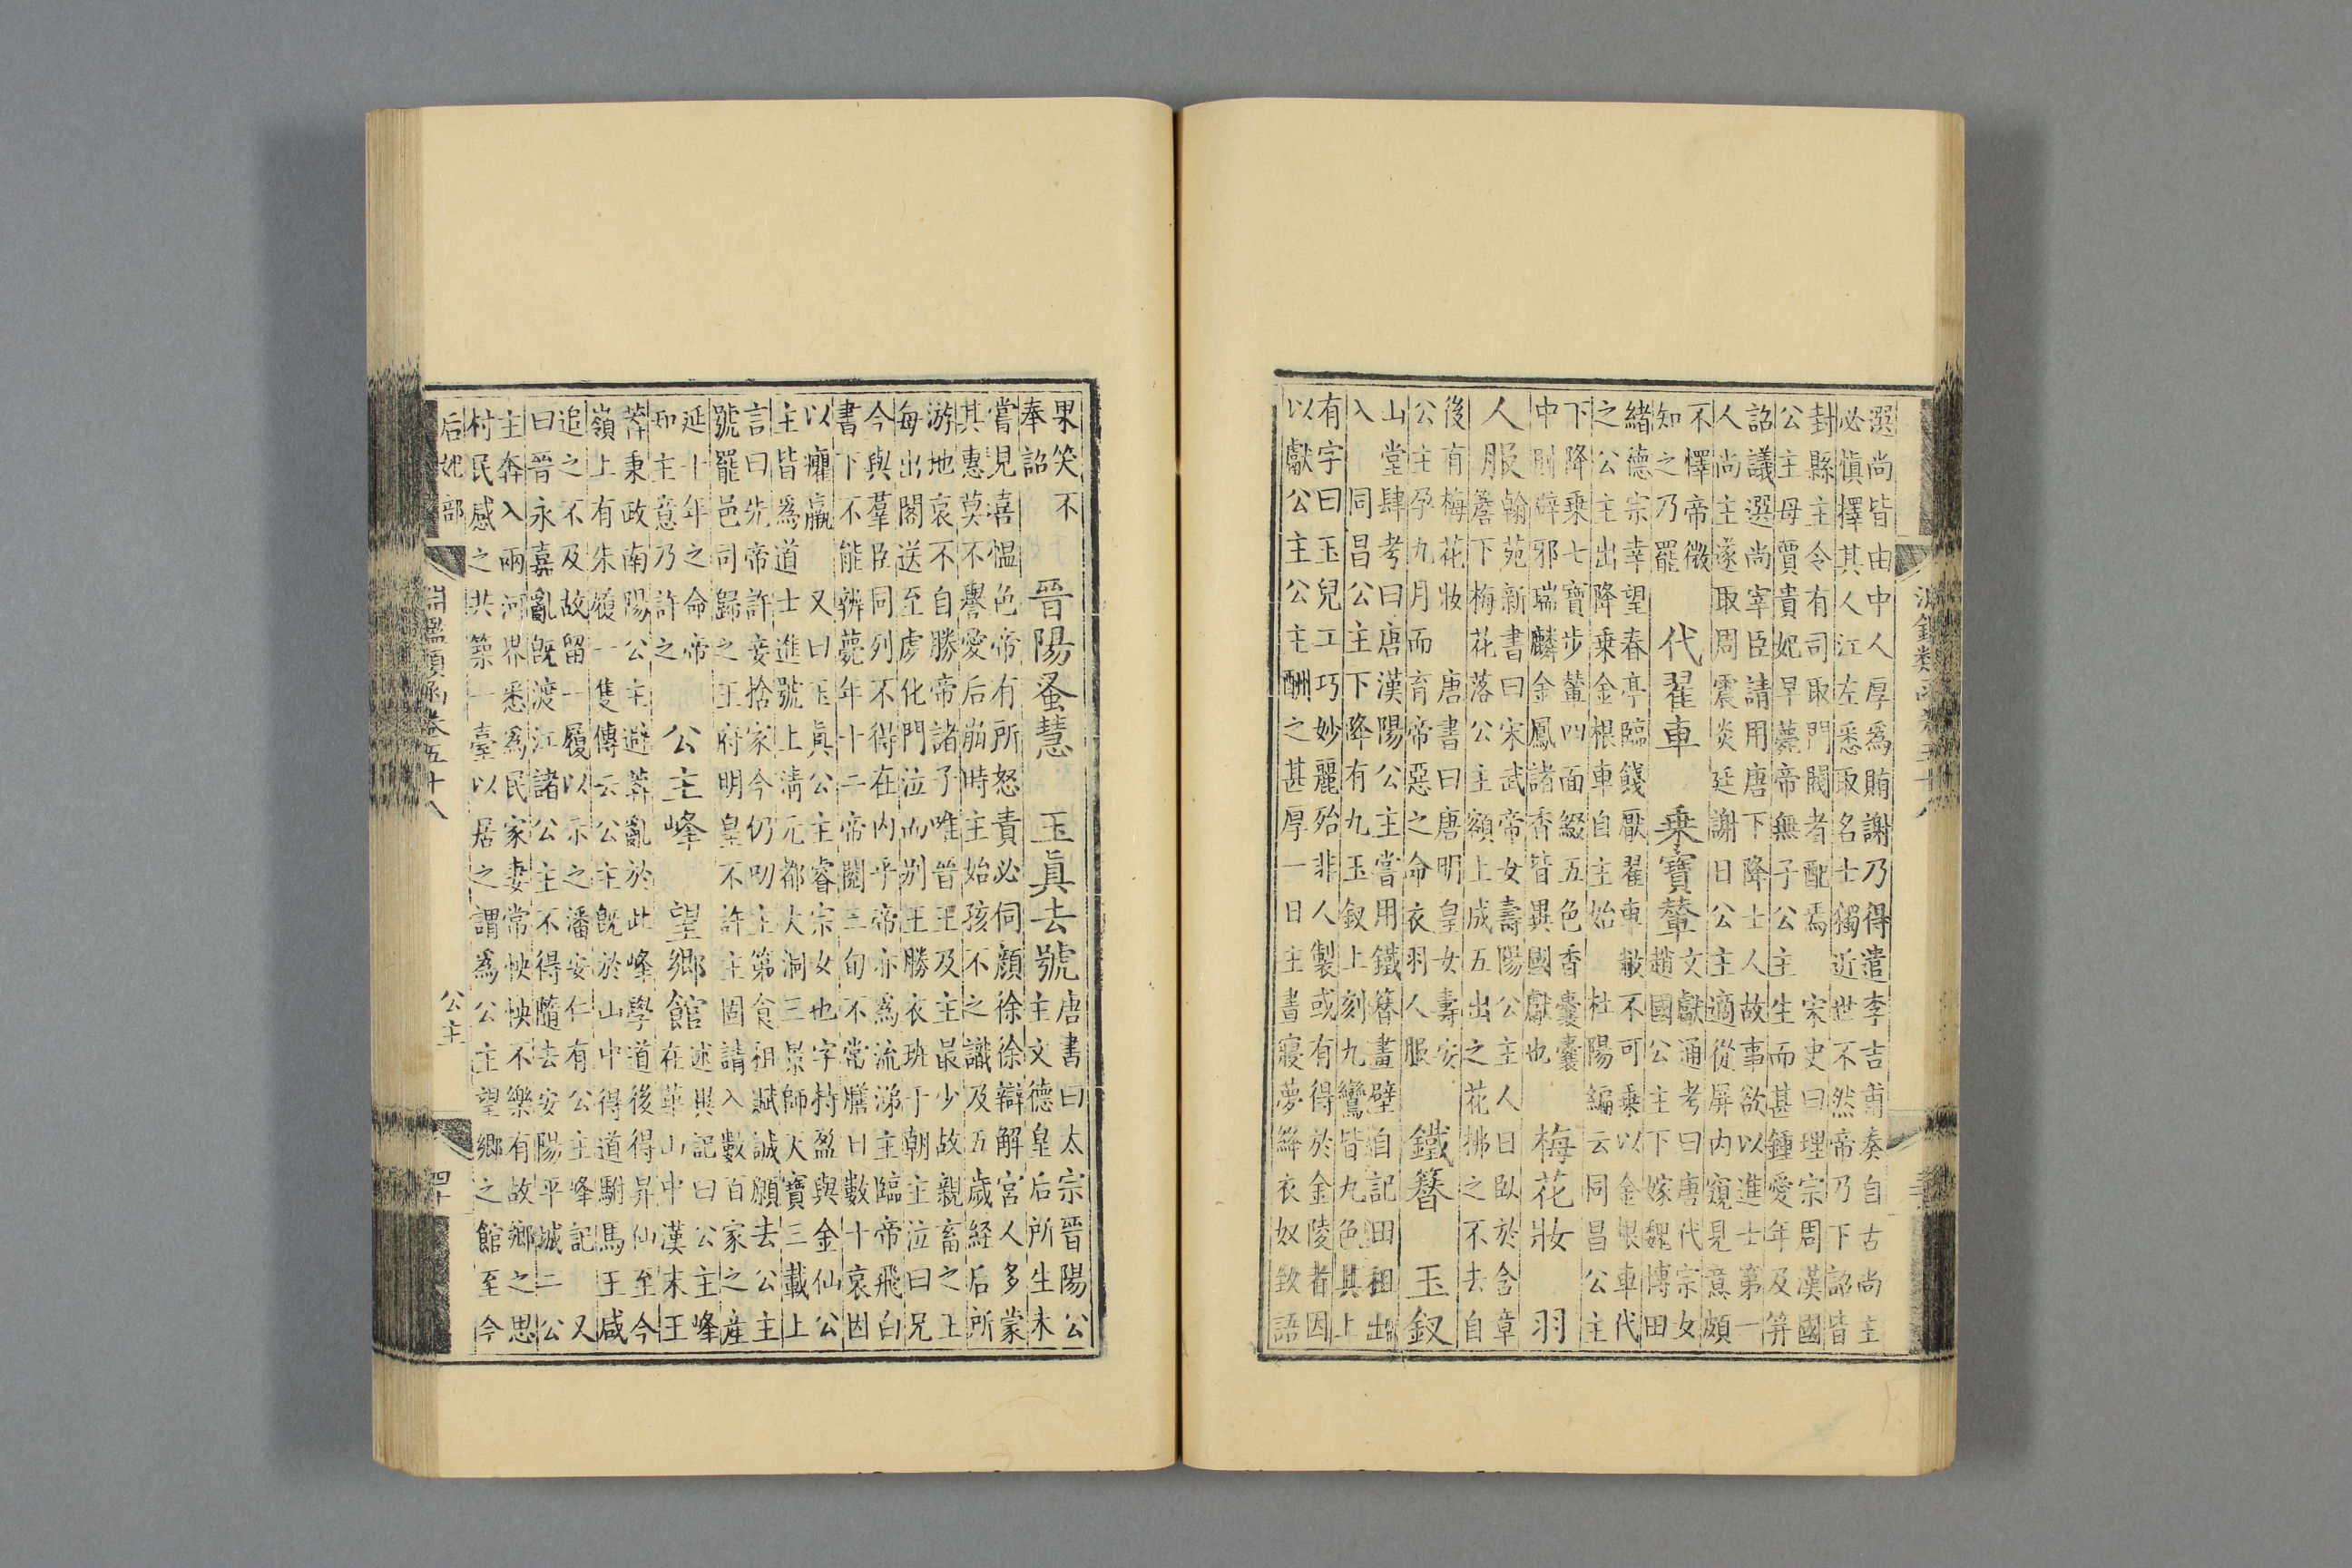 淵鑑類函卷五十八
選尚皆由中人厚爲賄謝乃得遣李吉甫奏自古尚主
必愼擇其人江左悉取名士獨近世不然帝乃下詔皆
封縣主令有司取門閥者配焉　宋史曰理宗周漢國
公主母賈貴妃早薨帝無子公主生而甚鍾愛年及笄
詔議選尚宰臣請用唐下降士人故事欲以進士第一
人尚主遂取周震炎廷謝日公主適從屏内窺見意頗
不懌帝微
知之乃罷
代翟車　乘寶輦
文獻通考曰唐代宗女
趙國公主下嫁魏博田
緒德宗幸望春亭臨餞厭翟車敝不可乘以金根車代
之公主出降乘金根車自主始　杜陽編云同昌公主
下降乘七寶步輦四面綴五色香囊囊
中則辟邪瑞麟金鳳諸香皆異國獻也
梅花妝　羽
人服
翰苑新書曰宋武帝女壽陽公主人日臥於含章
簷下梅花落公主額上成五出之花拂之不去自
後有梅花妝　唐書曰唐明皇女壽安
公主孕九月而育帝惡之命衣羽人服
鐵簪　玉釵
山堂肆考曰唐漢陽公主嘗用鐵簪畫壁自記田租出
入　同昌公主下降有九玉釵上刻九鸞皆九色其上
有字曰玉兒工巧妙麗殆非人製或有得於金陵者因
以獻公主公主酬之甚厚一日主晝寢夢絳衣奴致語
果笑不
奉詔
晉陽蚤慧　玉眞去號
唐書曰太宗晉陽公
主文德皇后所生未
嘗見喜慍色帝有所怒責必伺顏徐徐辯解宮人多蒙
其惠莫不譽愛后崩時主始孩不之識及五歲経后所
游地哀不自勝帝諸子唯晉王及主最少故親畜之王
每出閤送至虔化門泣而别王勝衣班于朝主泣曰兄
今與羣臣同列不得在内乎帝亦爲流涕主臨帝飛白
書下不能辨薨年十二帝閱三旬不常膳日數十哀因
以癯羸　又曰玉眞公主睿宗女也字持盈與金仙公
主皆爲道士進號上淸元都大洞三景師天寶三載上
言曰先帝許妾捨家今仍叨主第食租賦誠願去公主
號罷邑司歸之王府明皇不許主固請入數百家之産
延十年之命帝
知主意乃許之
公主峰　望鄉館
述異記曰公主峰
在華山中漢末王
莽秉政南陽公主避莽亂於此峰學道後得昇仙至今
嶺上有朱履一隻傳云公主旣於山中得道駙馬王咸
追之不及故留一履以示之潘安仁有公主峰記　又
曰晉永嘉亂旣渡江諸公主不得隨去安陽平城二公
主奔入兩河界悉爲民家妻常怏怏不樂有故鄉之思
村民感之共築一臺以居之謂爲公主望鄉之館至今
后妃部　淵鑑類函卷五十八　公主　四十